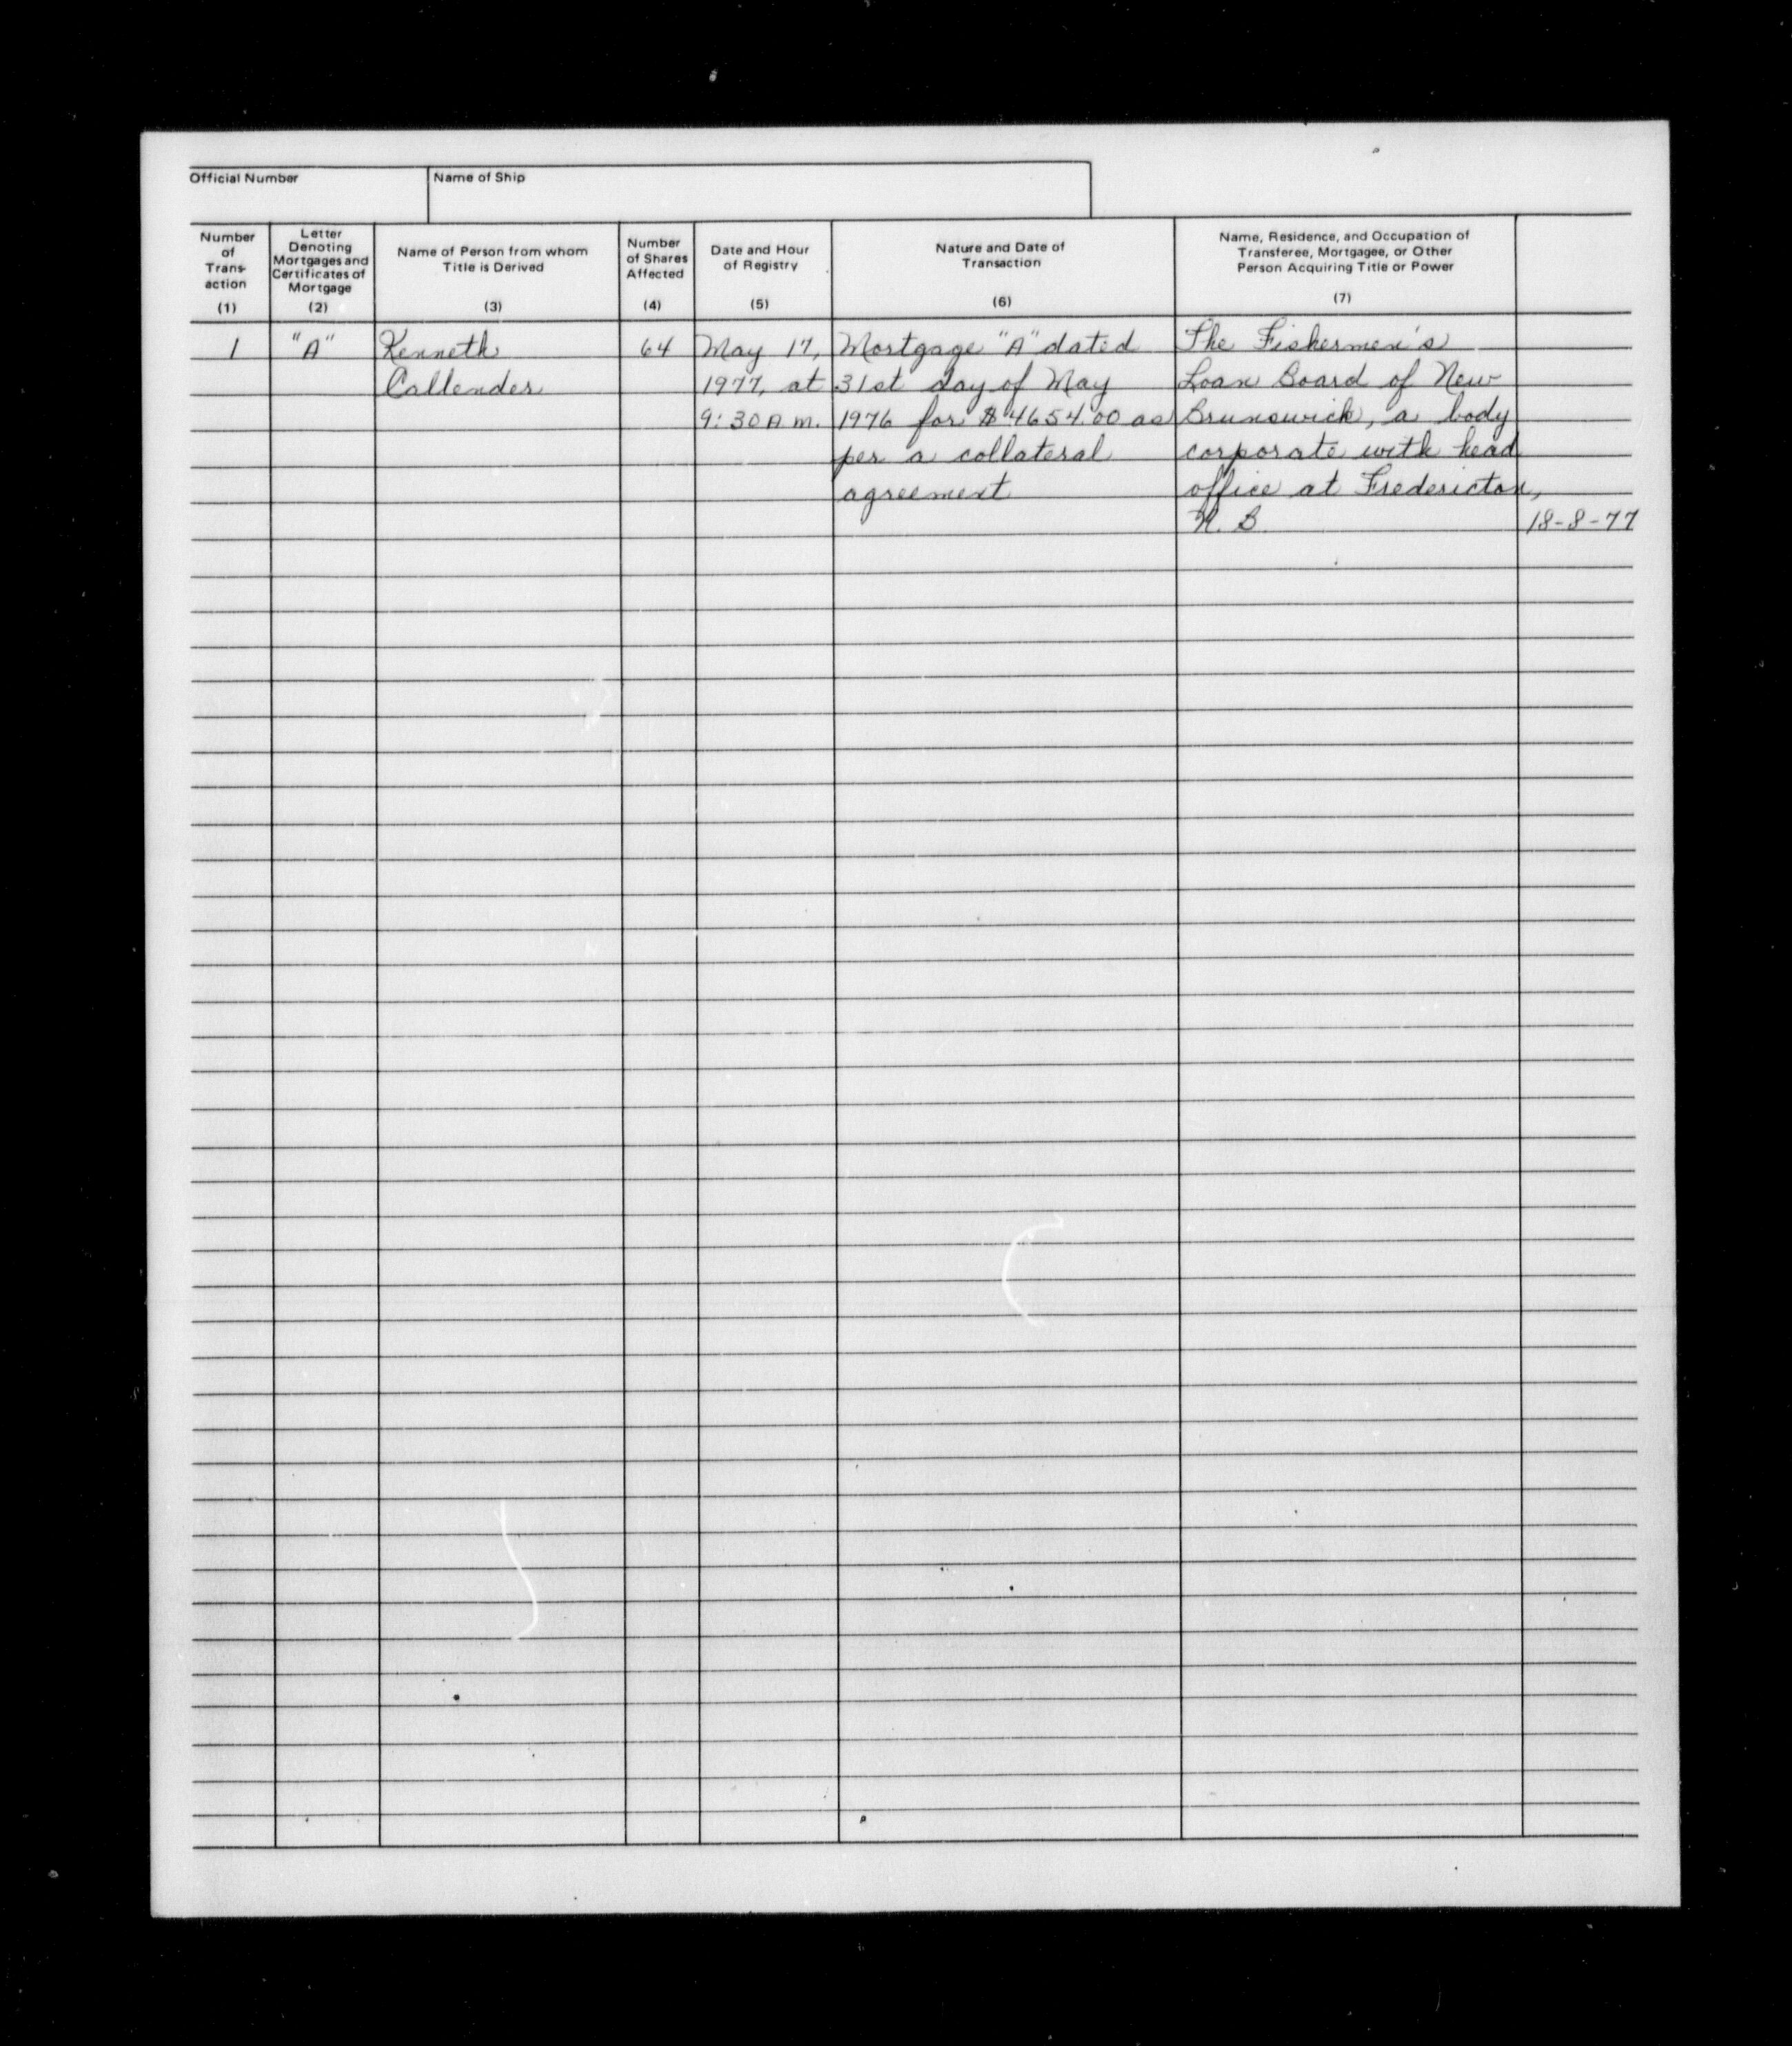 Official Number
Name of Ship
Number of Trans- action (1)
Letter Denoting Mortgages and Certificates of Mortgage (2)
Name of Person from whom Title is Derived (3)
Number of Shares Affected (4)
Date and Hour of Registry (5)
Nature and Date of Transaction (6)
Name, Residence, and Occupation of Transferee, Mortgagee, or Other Person Acquiring Title or Power (7)
1 "A" Kenneth 64 May 17, Mortgage "A" dated The Fishermen's
Callender 1977, at 31st day of May Loan Board of New
9:30 A m. 1976 for $4654.00 as Brunswick, a body
per a collateral corporate with head
agreement office at Fredericton,
N. B. 18-8-77